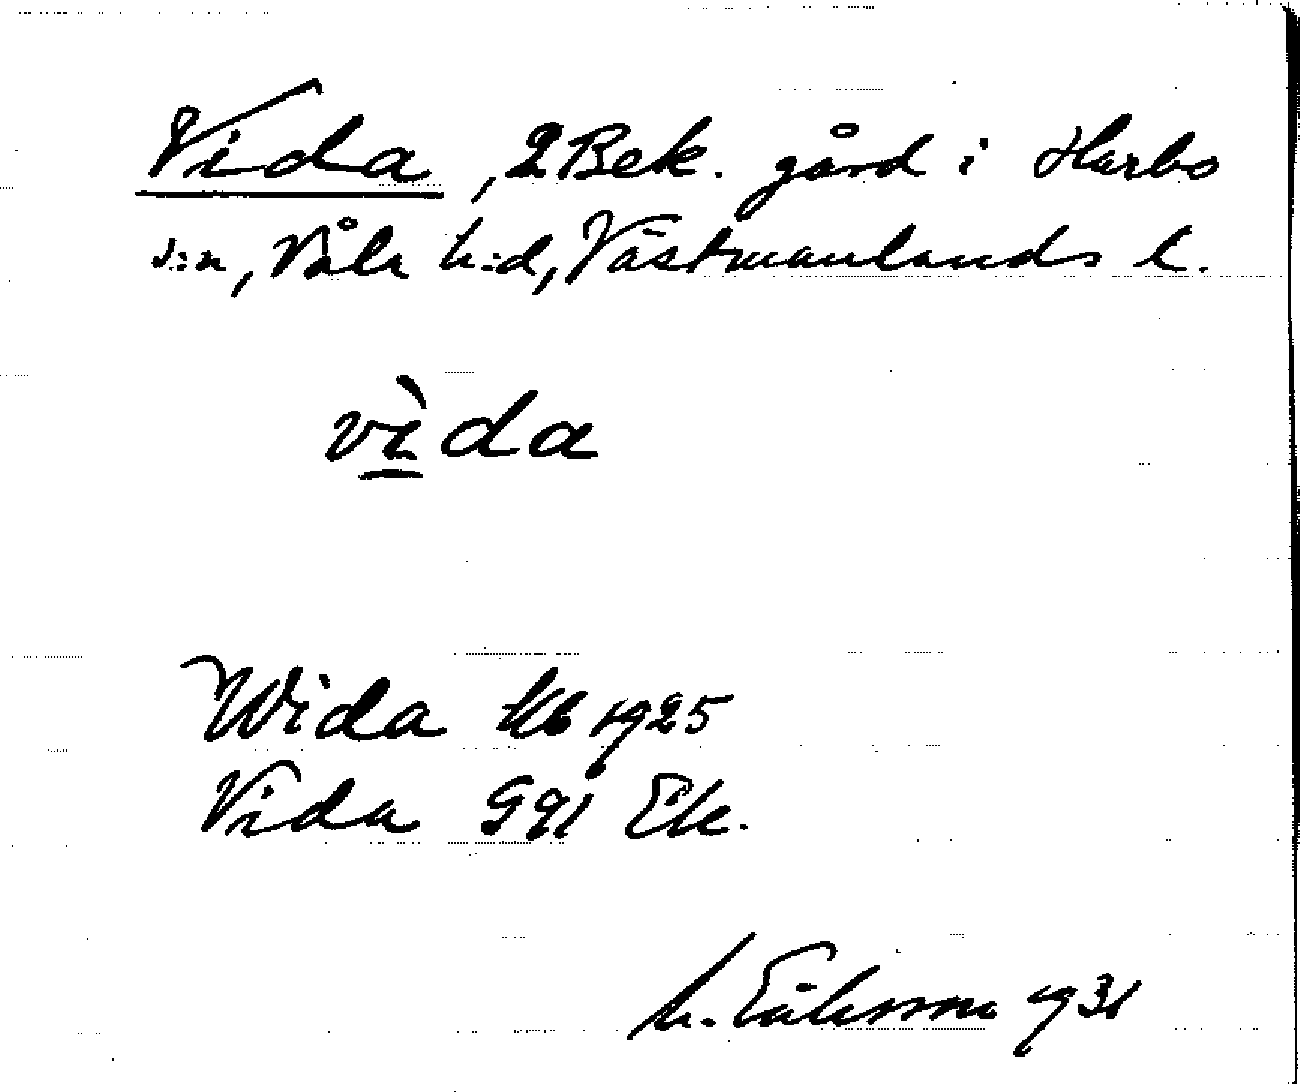 Vida, 2 Bek. gård i Harbo
s:n, Våla h:d, Västmanlands l.
vìda
Wida kb 1925
Vida GEK Ek.
M. Eriksson 1931